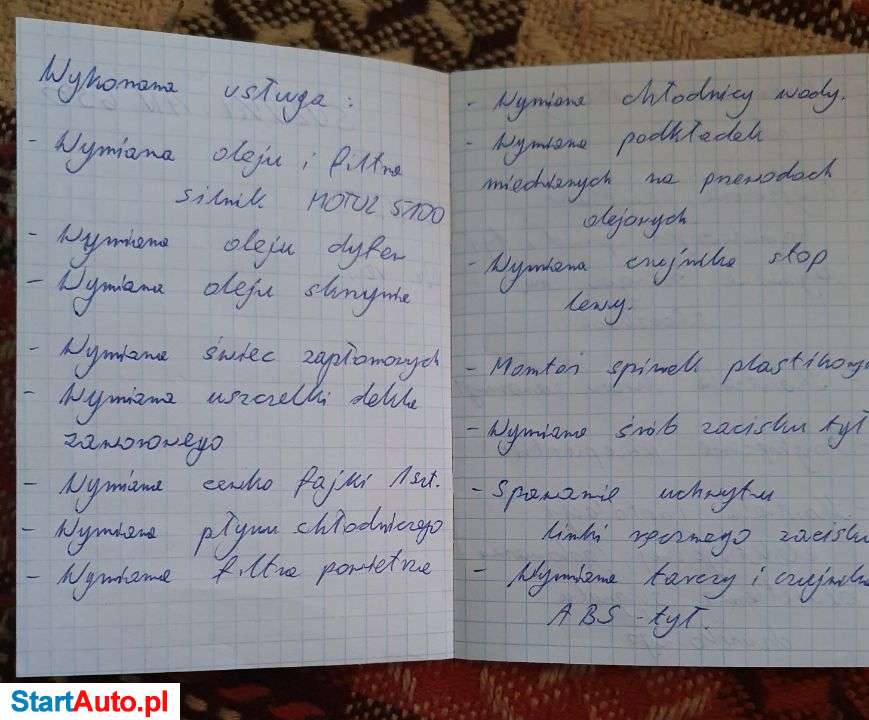 Wykonana usługa:
- Wymiana oleju i filtra
silnik MOTUL 5100
- Wymiana oleju dyfer
- Wymiana oleju skrzynia
- Wymiana świec zapłonowych
- Wymiana uszczelki dekla
zaworowego
- Wymiana cewko fajki 1szt.
- Wymiana płynu chłodniczego
- Wymiana filtra powietrza
- Wymiana chłodnicy wody.
- Wymiana podkładek
miedzianych na przewodach
olejowych
- Wymiana czujnika stop
lewy.
- Montaż spinek plastikowy
- Wymiana śrób zacisku tył
- Spawanie uchwytu
linki ręcznego zacisku
- Wymiana tarczy i czujnika
ABS - tył.
StartAuto.pl